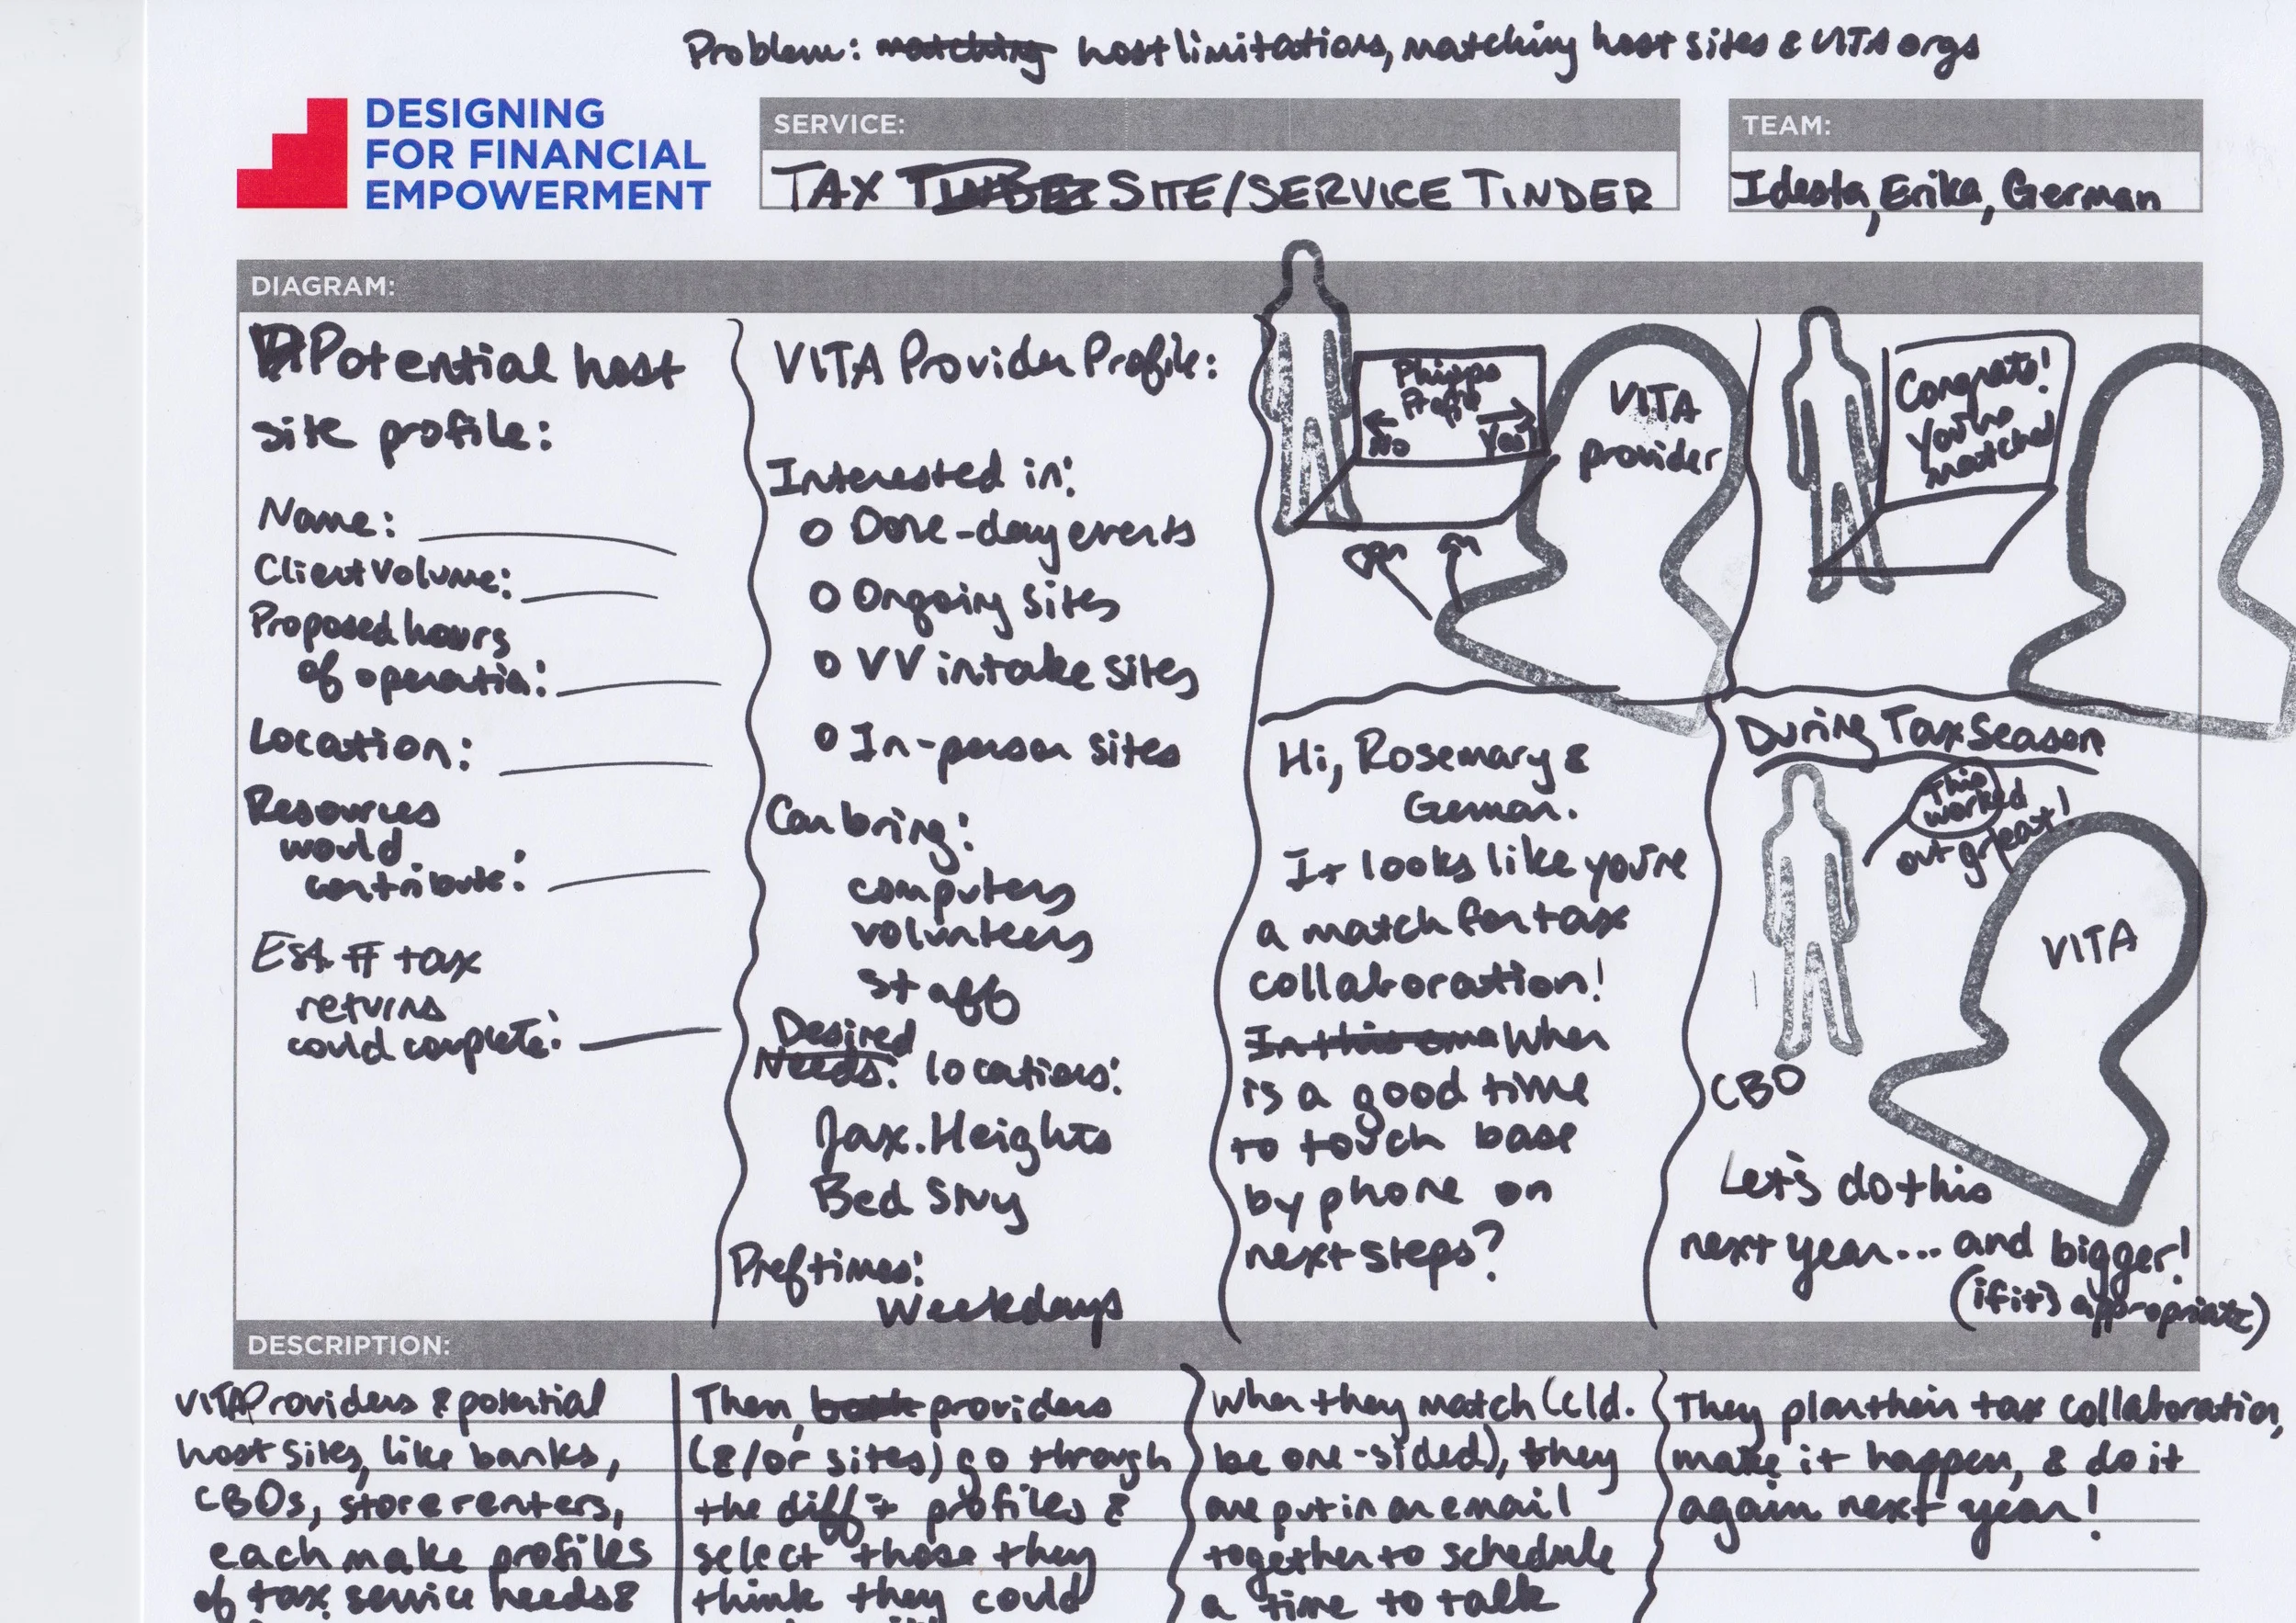 Problem: matching host limitations, matching host sites & VITA orgs
DESIGNING
FOR FINANCIAL
EMPOWERMENT
SERVICE:
TAX TINDER SITE/SERVICE TINDER
TEAM:
Idesta, Erika, German
DIAGRAM:
Potential host
site profile:
Name:
Client Volume:
Proposed hours
of operation:
Location:
Resources
would
contribute:
Est. # tax
returns
could complete:
VITA Provider Profile:
Interested in:
One-day events
Ongoing sites
VV intake sites
In-person sites
Can bring:
computers
volunteers
staff
Desired
Needs: locations:
Jax. Heights
Bed Stuy
Pref times:
Weekdays
Phipps
Profile
No Yes!
VITA
provider
Congrats!
You've
matched
Hi, Rosemary &
German.
It looks like you're
a match for tax
collaboration!
In this When
is a good time
to touch base
by phone on
next steps?
During Tax Season
This
worked
out great!
VITA
CBO
Let's do this
next year... and bigger!
(if it's appropriate)
DESCRIPTION:
VITA Providers & potential
host sites, like banks,
CBOs, store renters,
each make profiles
of tax service needs &
Then, both providers
(&/or sites) go through
the diff't profiles &
select those they
think they could
When they match (cld.
be one-sided), they
are put in an email
together to schedule
a time to talk
They plan their tax collaboration,
make it happen, & do it
again next year!